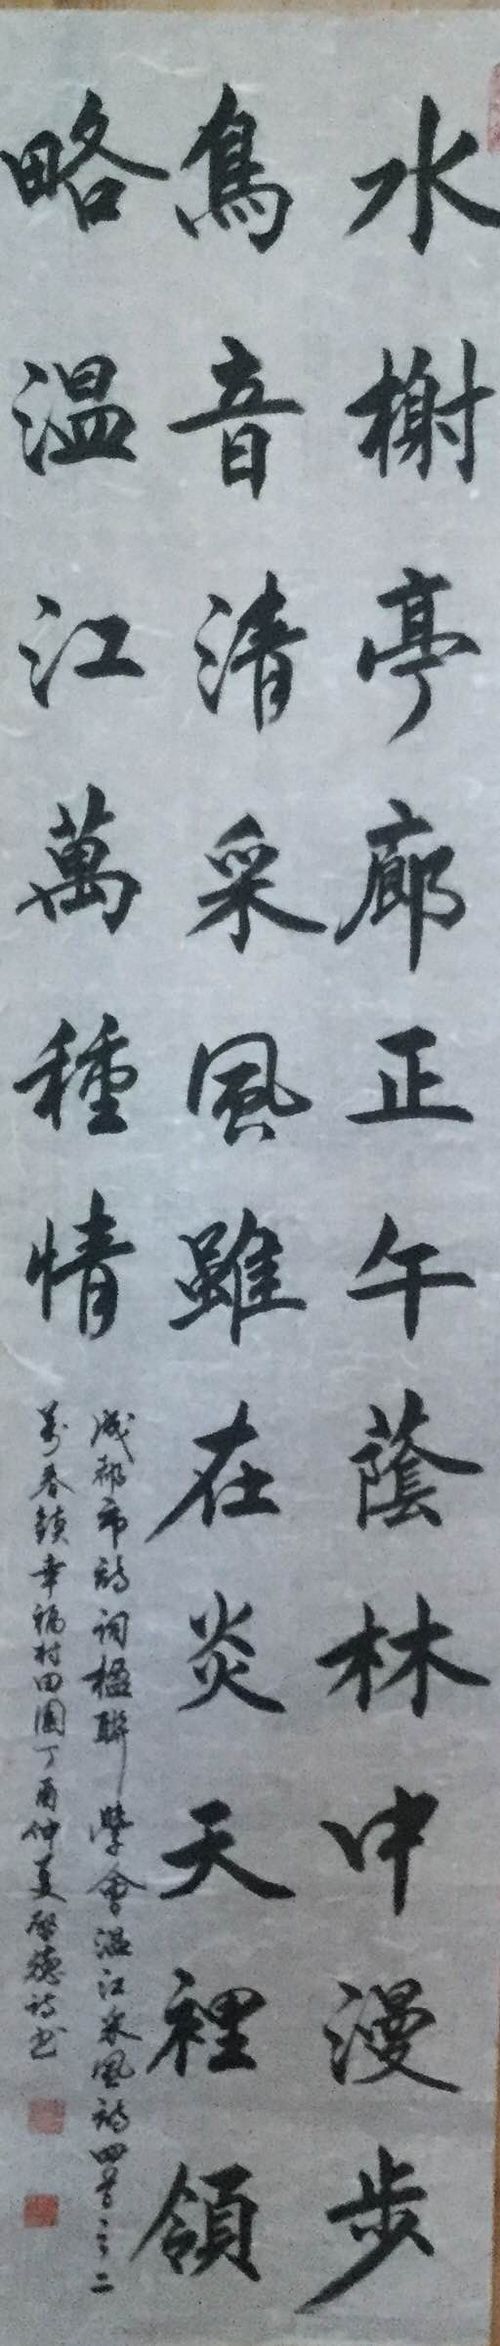 水榭亭廊正午蔭林中漫步
鳥音清采风雖在炎天裡領
略温江萬種情
成都市詩词楹聯學會温江采风詩四首之二
万春鎮幸福村田園丁酉仲夏啟德詩书